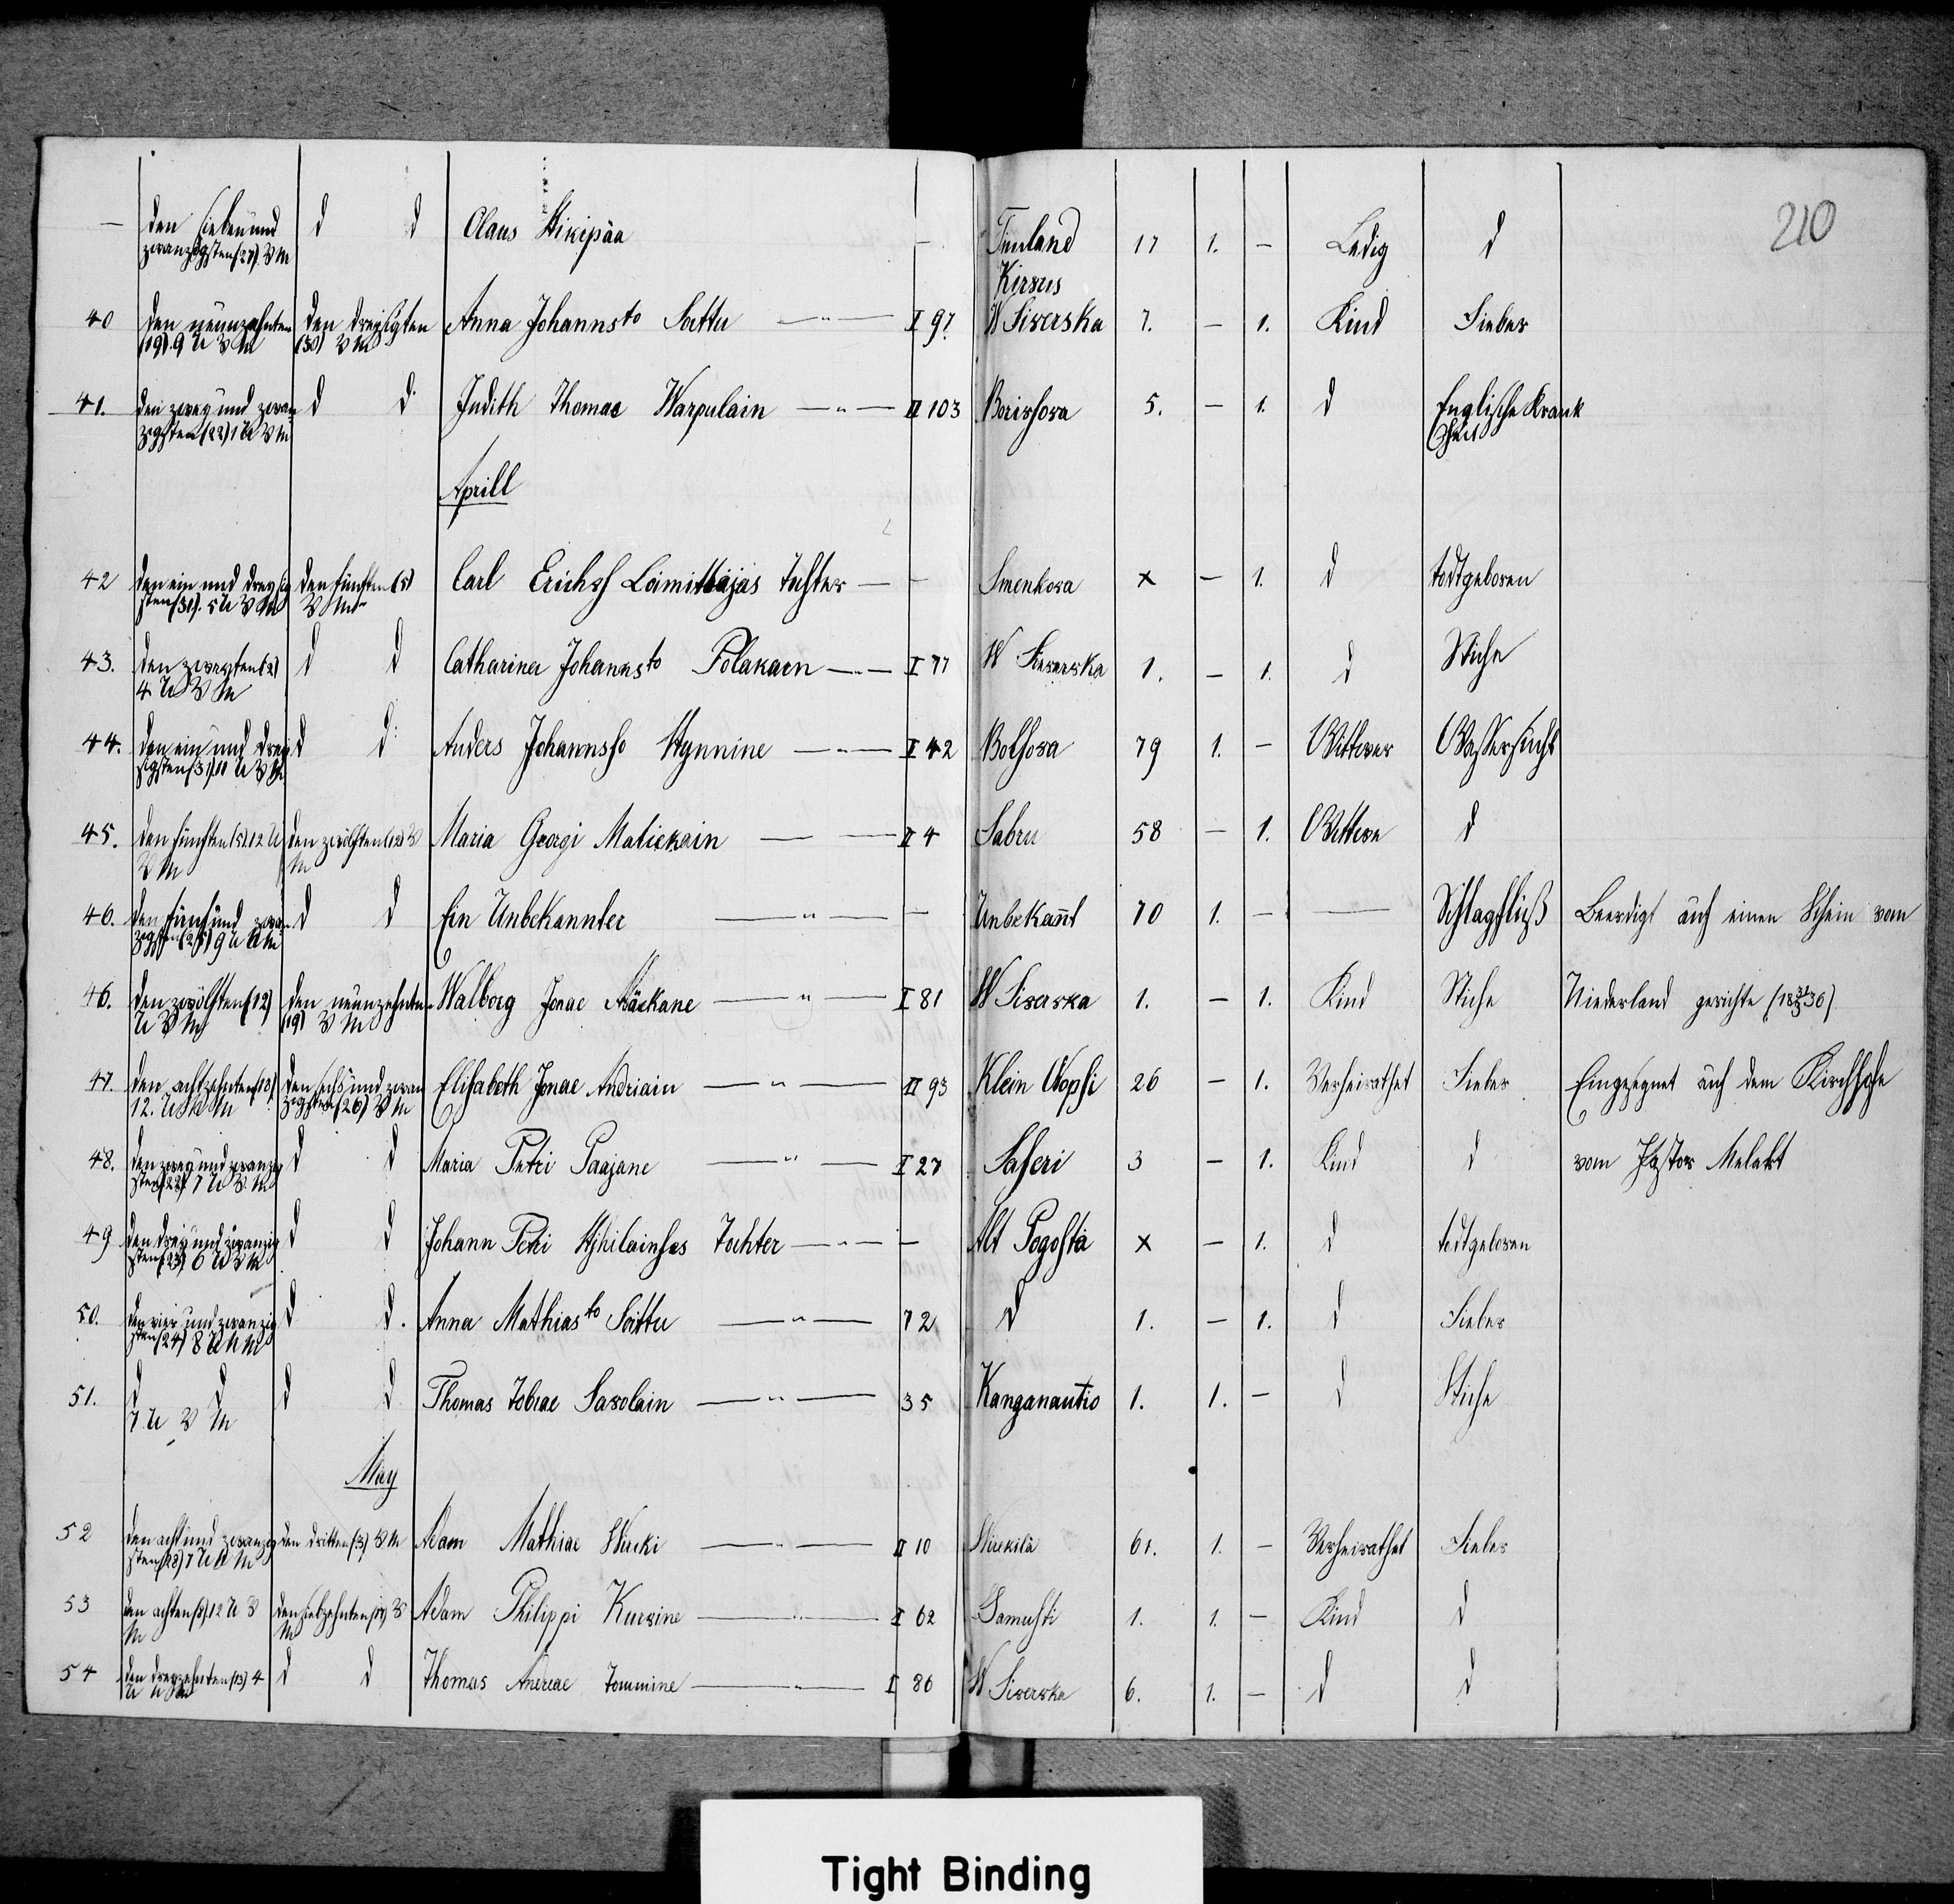 210
— den siebenund d d Claus Hiripää — Finland 17 1. — Ledig d
zwanzigsten (27) V M Kirvus
40 den neunzehnten den dreisigten Anna Johannsto Soittu — " — I 97. W Siverska 7. — 1. Kind Fieber
(19) 9 U V M (30) V M
41. den zwey und zwan d d. Judith Thomae Warpulain — " — II 103 Borissova 5. — 1. d Englische Krank
zigsten (22) 1 U V M heit
Aprill
42 den ein und dreysig den fünften (5) Carl Erichs Tochter — — Smenkova x — 1. d todtgeboren
sten (31). 5 U V M V M
43. den zweyten (2) d d Catharina Johannsto Polakain — " — I 77 W Siverska 1. — 1. d Stiche
4 U V M
44. den ein und drey d d: Anders Johannsso Hynnine — " — I 42 Bolsova 79 1. — Wittwer Wassersucht
sigsten (31) 11 U V M
45. den fünften (5) 12 U den zwölften (12) V Maria Georgi Matickain — — II 4 Sabru 58 — 1. Wittwe d
V M M
46. den fünfund zwan d d Ein Unbekannter — " — — Unbekannt 70 1. — — Schlagfluß Beerdigt auf einen Schein vom
zigsten (25) 9 U N M
46. den zwölften (12) den neunzehnten Walborg Jonae Mäckäne — " — I 81 W Siverska 1. — 1. Kind Stiche Niederland gerichte (18 31/3 36)
U V M (19) V M
47. den achtzehnten (18) den sechs und zwan Elisabeth Jonae Andriain — " — II 93 Klein Wopsi 26 — 1. Verheirathet Fieber Eingesegnet auf dem Kirchhofe
12. U N M zigsten (26) V M
48. den zwey und zwanzig d d Maria Petri Paajane — " — I 27 Saseri 3 — 1. Kind d vom Pastor
sten (22) 7 U V. M
49 den drey und zwanzig d d Johann Petri Tochter — " — — Alt Pogosta x — 1. d todtgeboren
sten (23) 6 U V M
50. den vier und zwanzig d d. Anna Mathiasto Soittu — " — 72 d 1. — 1. d Fieber
sten (24) 8 U N M
51. d d d d Thomas Tobiae Savolain — " — 35 Kanganautio 1. 1. — d Stiche
7 U V M
May
52 den acht und zwanzig den dritten (3) V M Adam Mathiae Hirki — " — II 10 Hirkilä 61. 1. — Verheirathet Fieber
sten (28) 7 U N M
53 den achten (8) 12 U V den siebzehnten (17) V Adam Philippi Kuivine — " — I 62 Samusti 1. 1. — Kind d
M M
54 den dreyzehnten (13) 4 d d Thomas Andreae Tommine — " — I 86 W Siverska 6. 1. — d d
U N M
Tight Binding